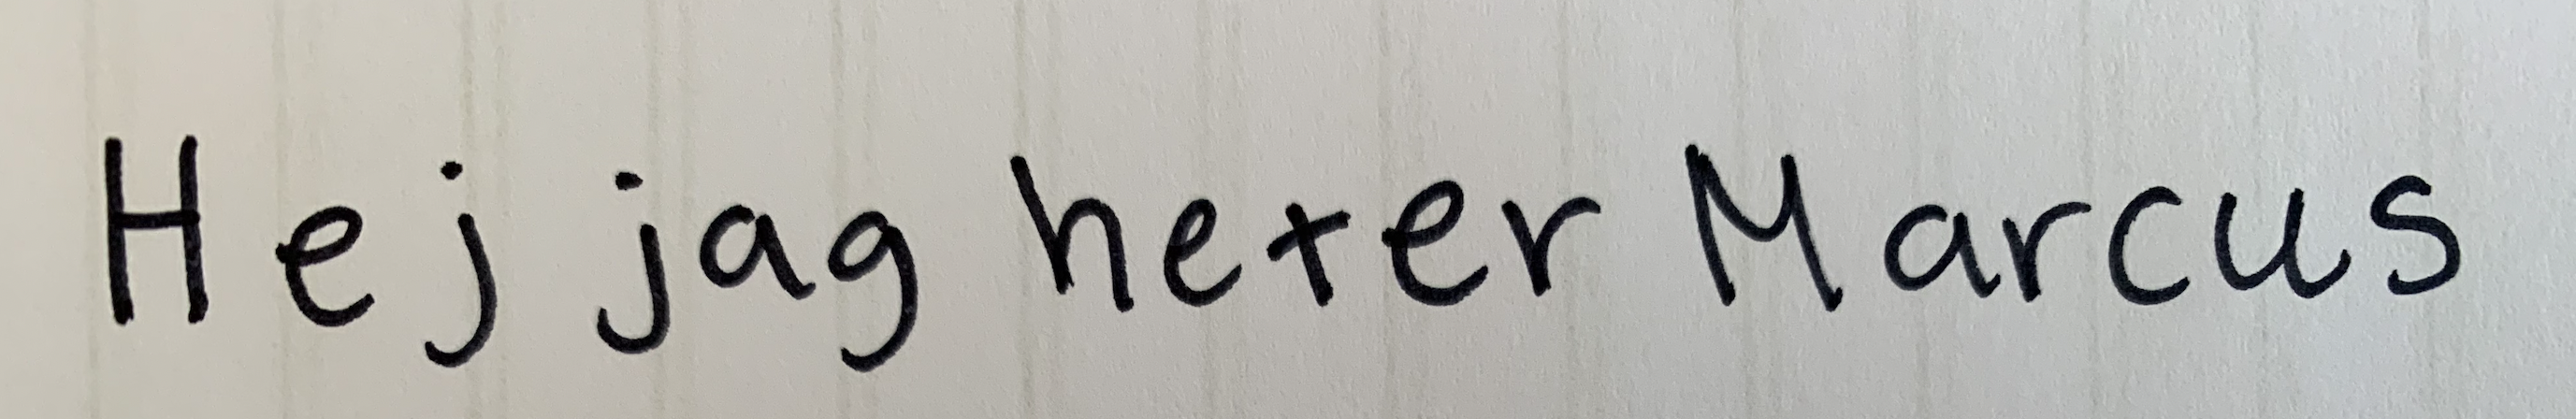 Hej jag heter Marcus